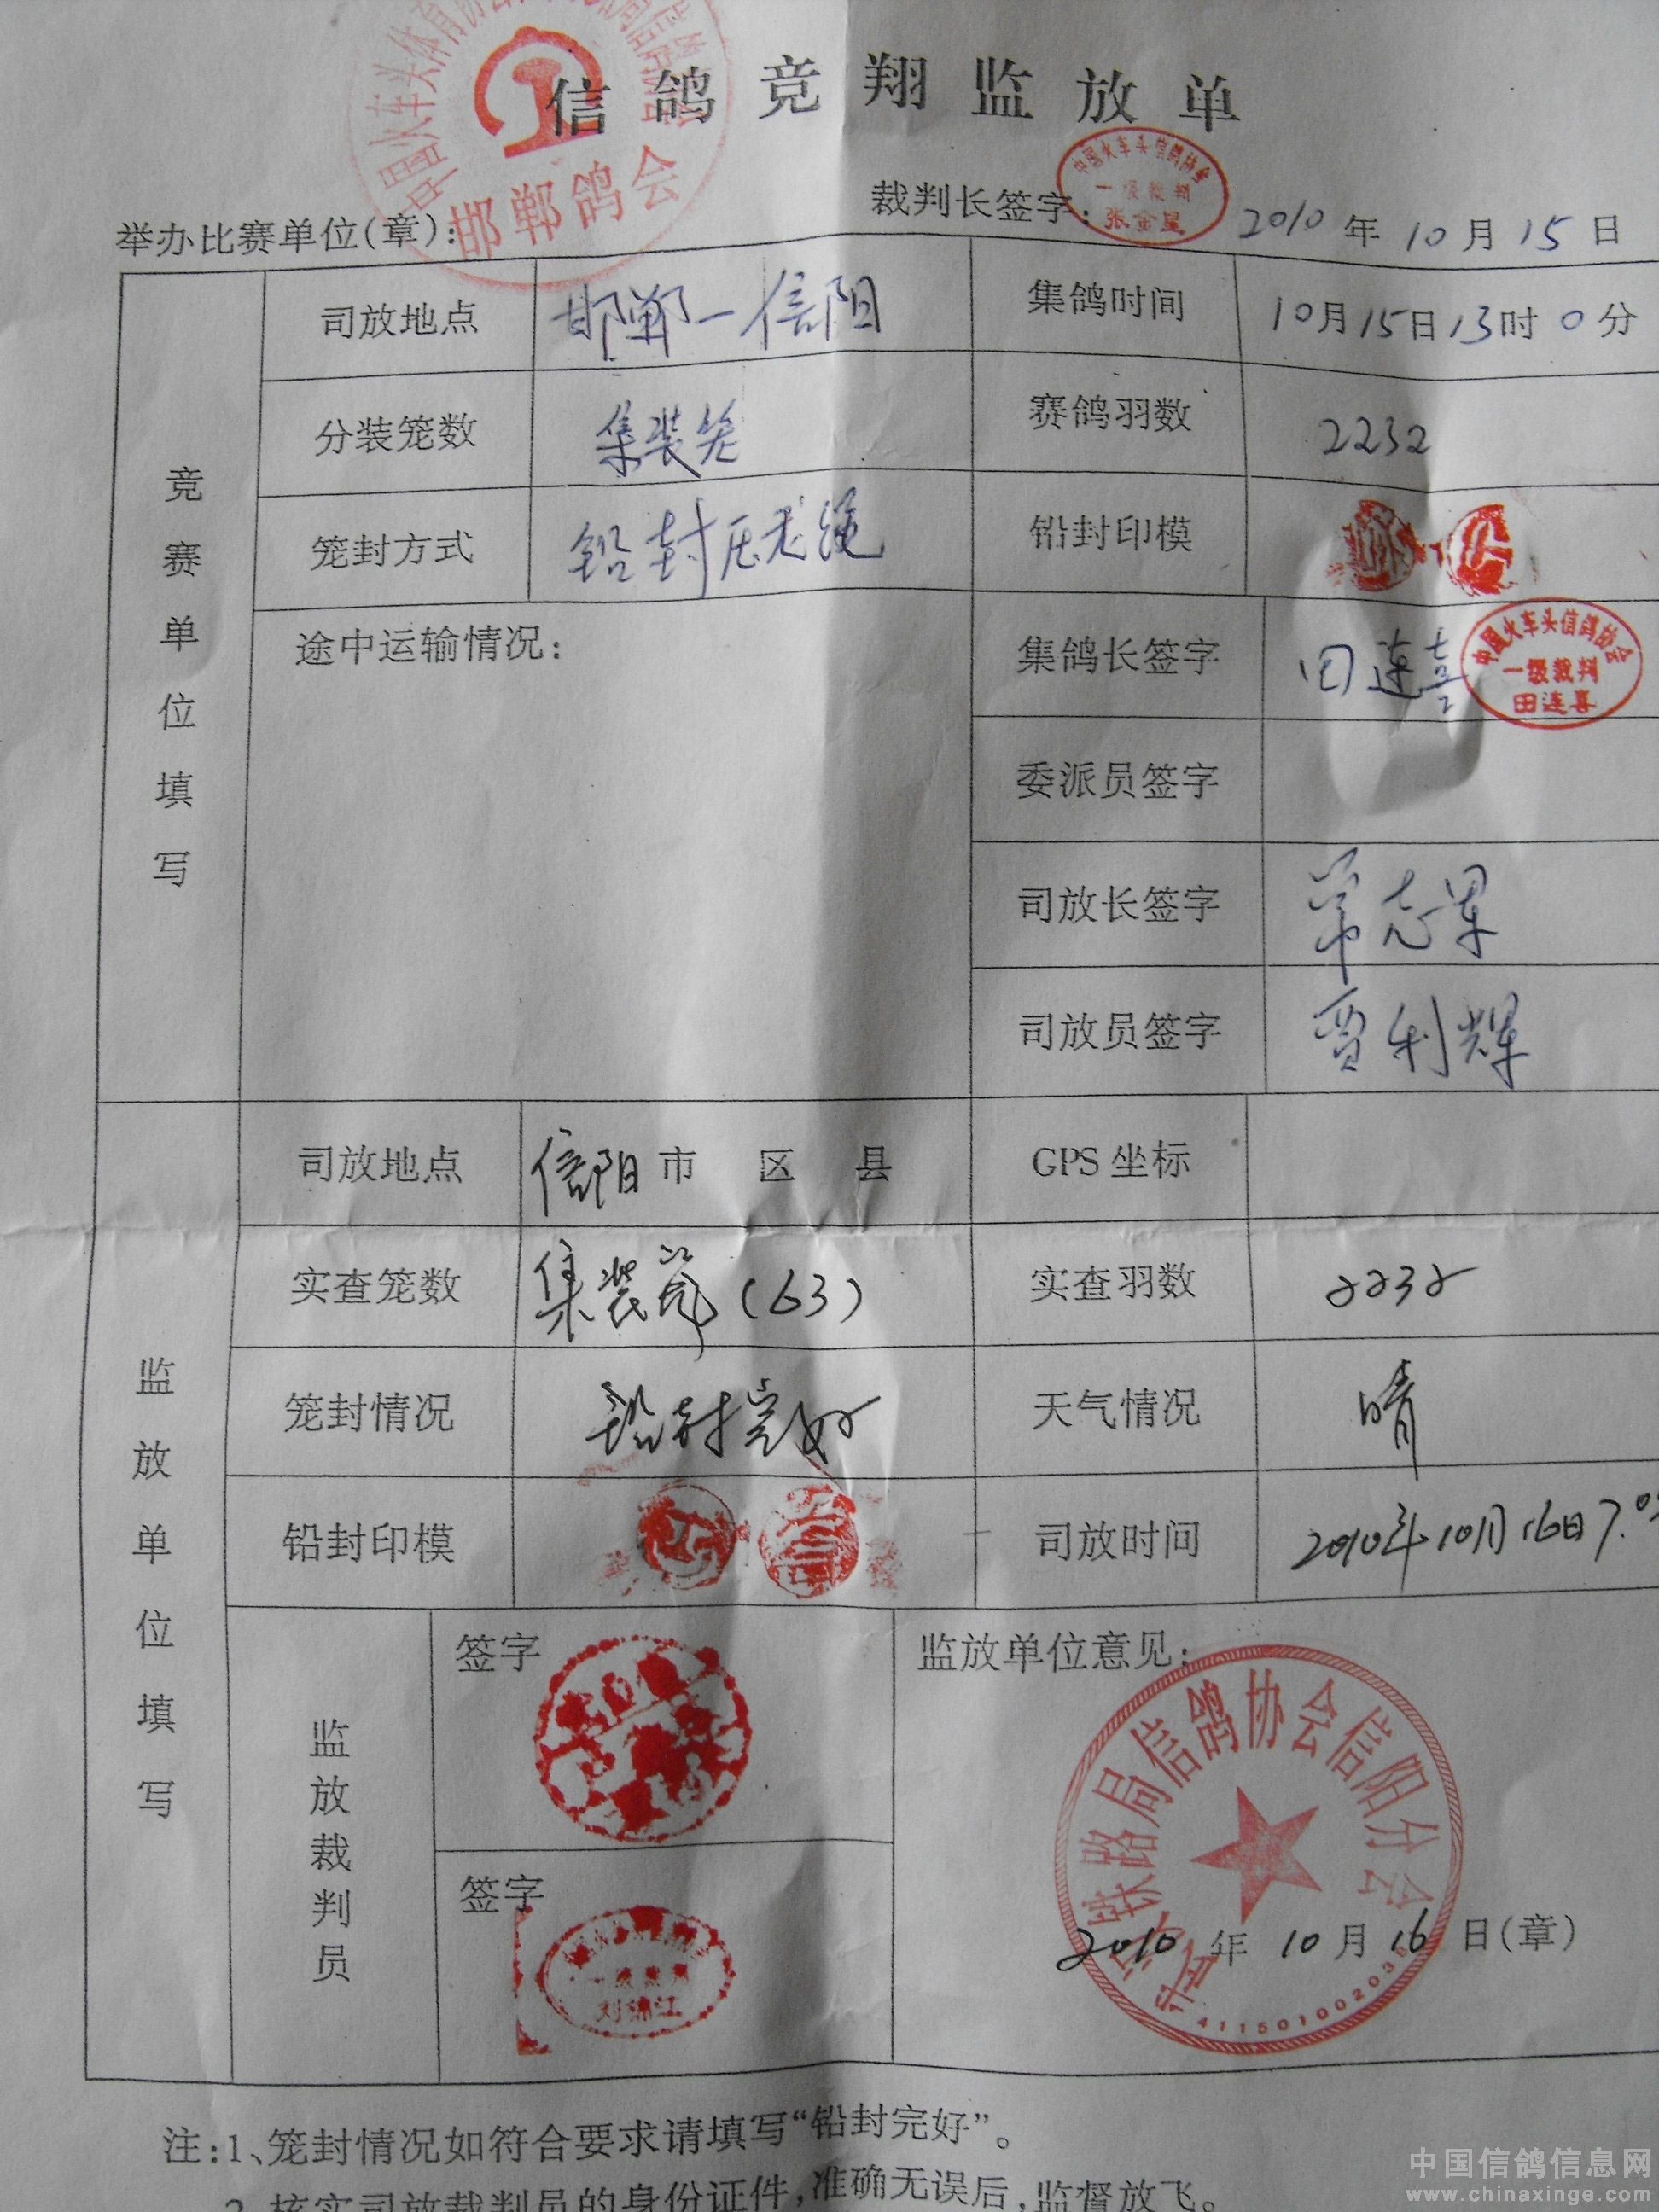 信鸽竞翔监放单
邯郸鸽会
举办比赛单位(章):
裁判长签字:
中国火车头信鸽协会
一级裁判
张金星
2010年10月15日
竞赛单位填写
司放地点 邯郸—信阳 集鸽时间 10月15日13时0分
分装笼数 集装笼 赛鸽羽数 2232
笼封方式 铅封 铅封印模
途中运输情况:
集鸽长签字 田连喜
中国火车头信鸽协会
一级裁判
田连喜
委派员签字
司放长签字
司放员签字 贾利辉
监放单位填写
司放地点 信阳市 区 县 GPS坐标
实查笼数 集装笼(63) 实查羽数 2232
笼封情况 铅封完好 天气情况 晴
铅封印模 司放时间 2010年10月16日7.05
监放裁判员
签字
签字
一级裁判
刘锦江
监放单位意见:
铁路局信鸽协会信阳分会
2010年10月16日(章)
注:1、笼封情况如符合要求请填写“铅封完好”。
2、核实司放裁判员的身份证件,准确无误后,监督放飞。
中国信鸽信息网
www.chinaxinge.com